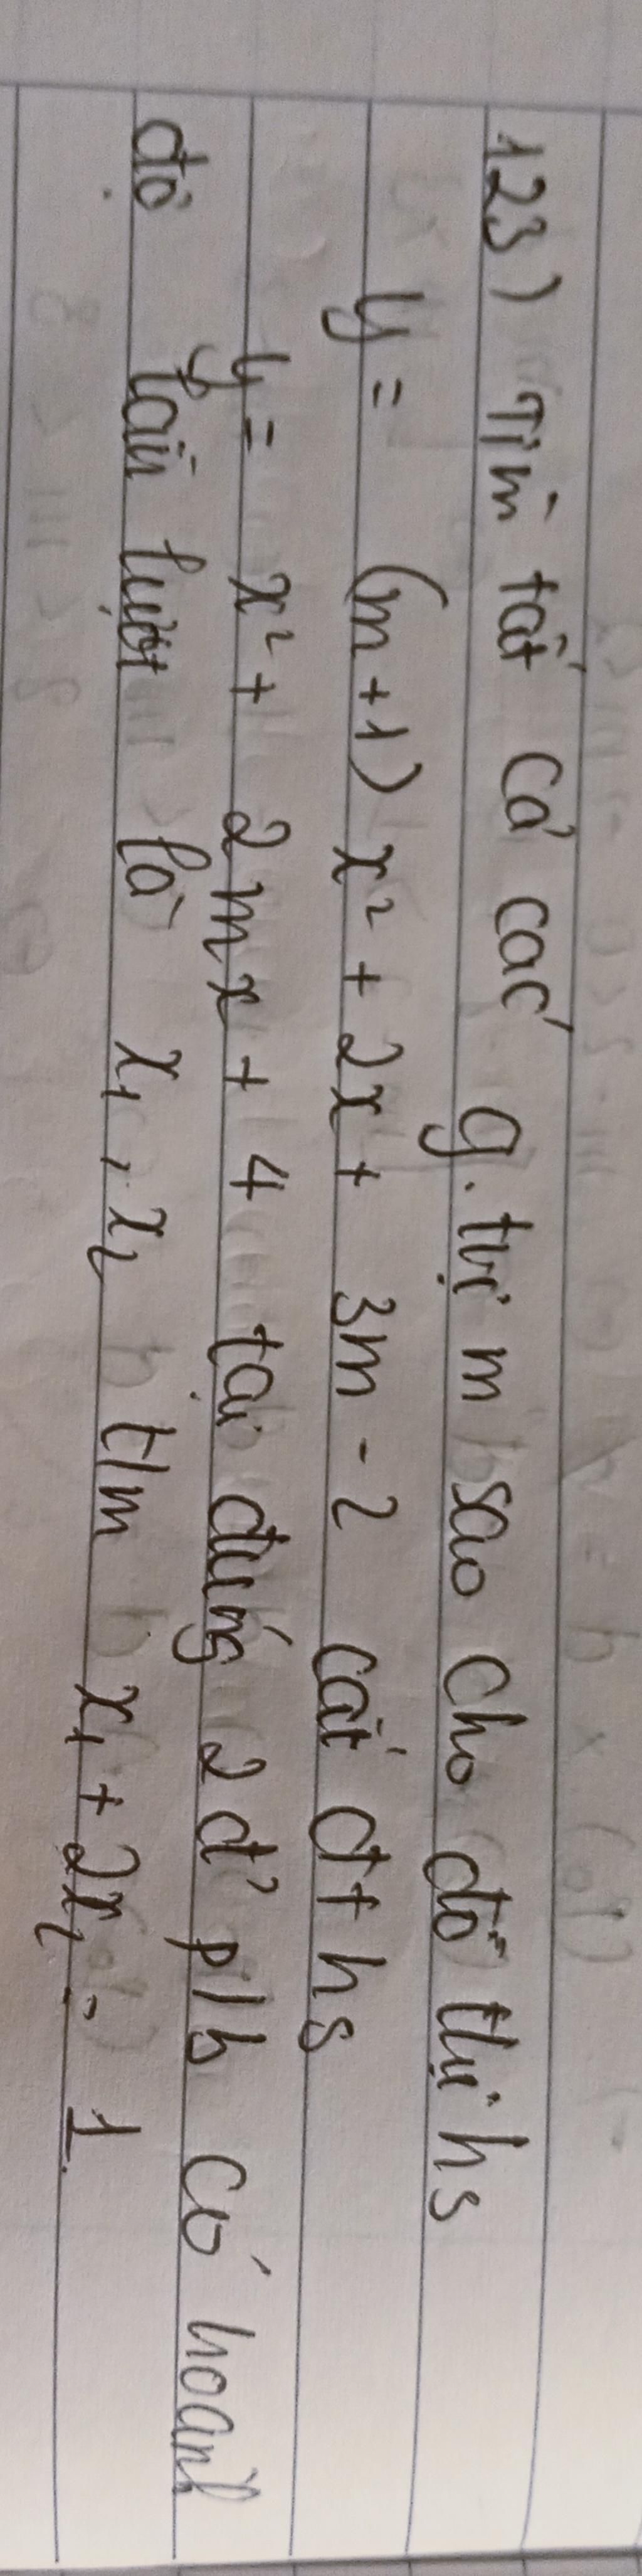 123) Tìm tất cả các g.trị m sao cho đồ thị hs
y = (m+1) x² + 2x + 3m - 2 cắt đths
y = x² + 2mx + 4 tại đúng 2 đ' p/b có hoành
độ lần lượt là x₁, x₂ t/m x₁ + 2x₂ = 1